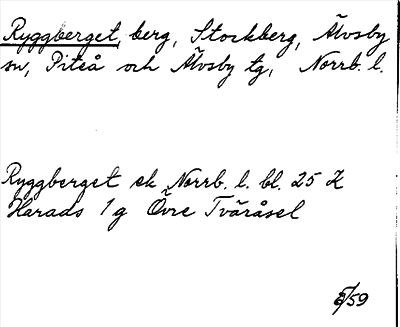 Ryggberget, berg, Stockberg, Älvsby
sn, Piteå och Älvsby tg, Norrb. l.
Ryggberget ek Norrb. l. bl. 25 K
Harads 1 g Övre Tväråsel
/59